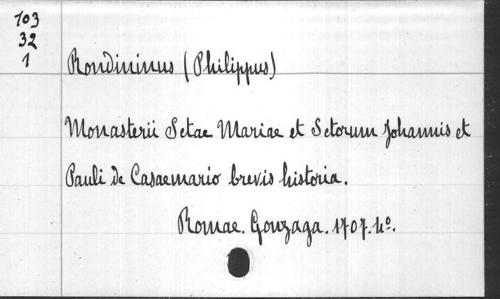 103
32
1
Rondininus (Philippus)
Monasterii Sctae Mariae et Sctorum Johannis et
Pauli de Casaemario brevis historia.
Romae. Gonzaga. 1707. 4º.